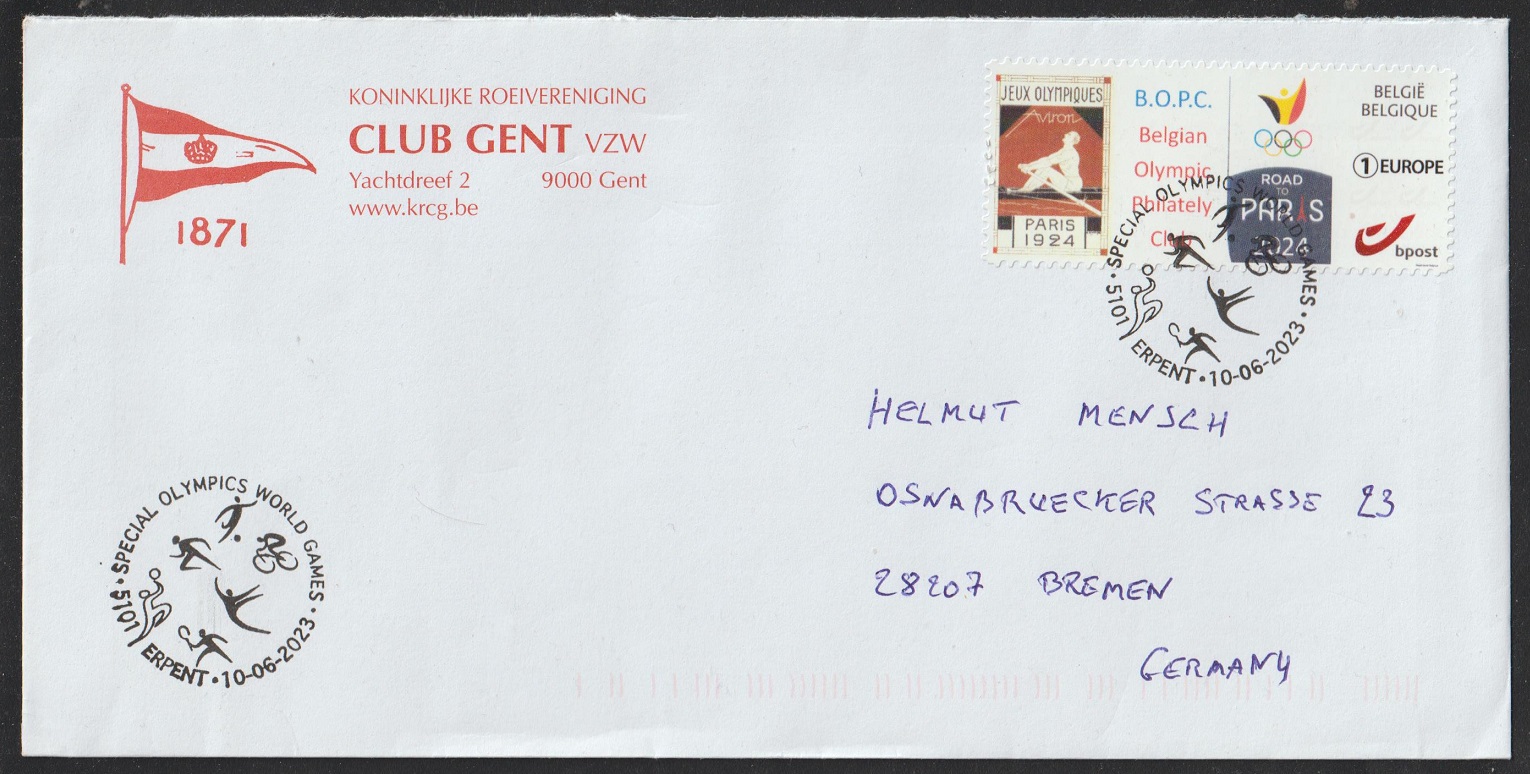 KONINKLIJKE ROEIVERENIGING
CLUB GENT VZW
Yachtdreef 2 9000 Gent
www.krcg.be
1871
JEUX OLYMPIQUES
Aviron
PARIS
1924
B.O.P.C.
Belgian
Olympic
Philately
Club
ROAD
TO
PARIS
2024
BELGIË
BELGIQUE
1 EUROPE
bpost
SPECIAL OLYMPICS WORLD GAMES • 5101 • ERPENT • 10-06-2023 •
HELMUT MENSCH
OSNABRUECKER STRASSE 23
28207 BREMEN
GERMANY
SPECIAL OLYMPICS WORLD GAMES • 5101 • ERPENT • 10-06-2023 •